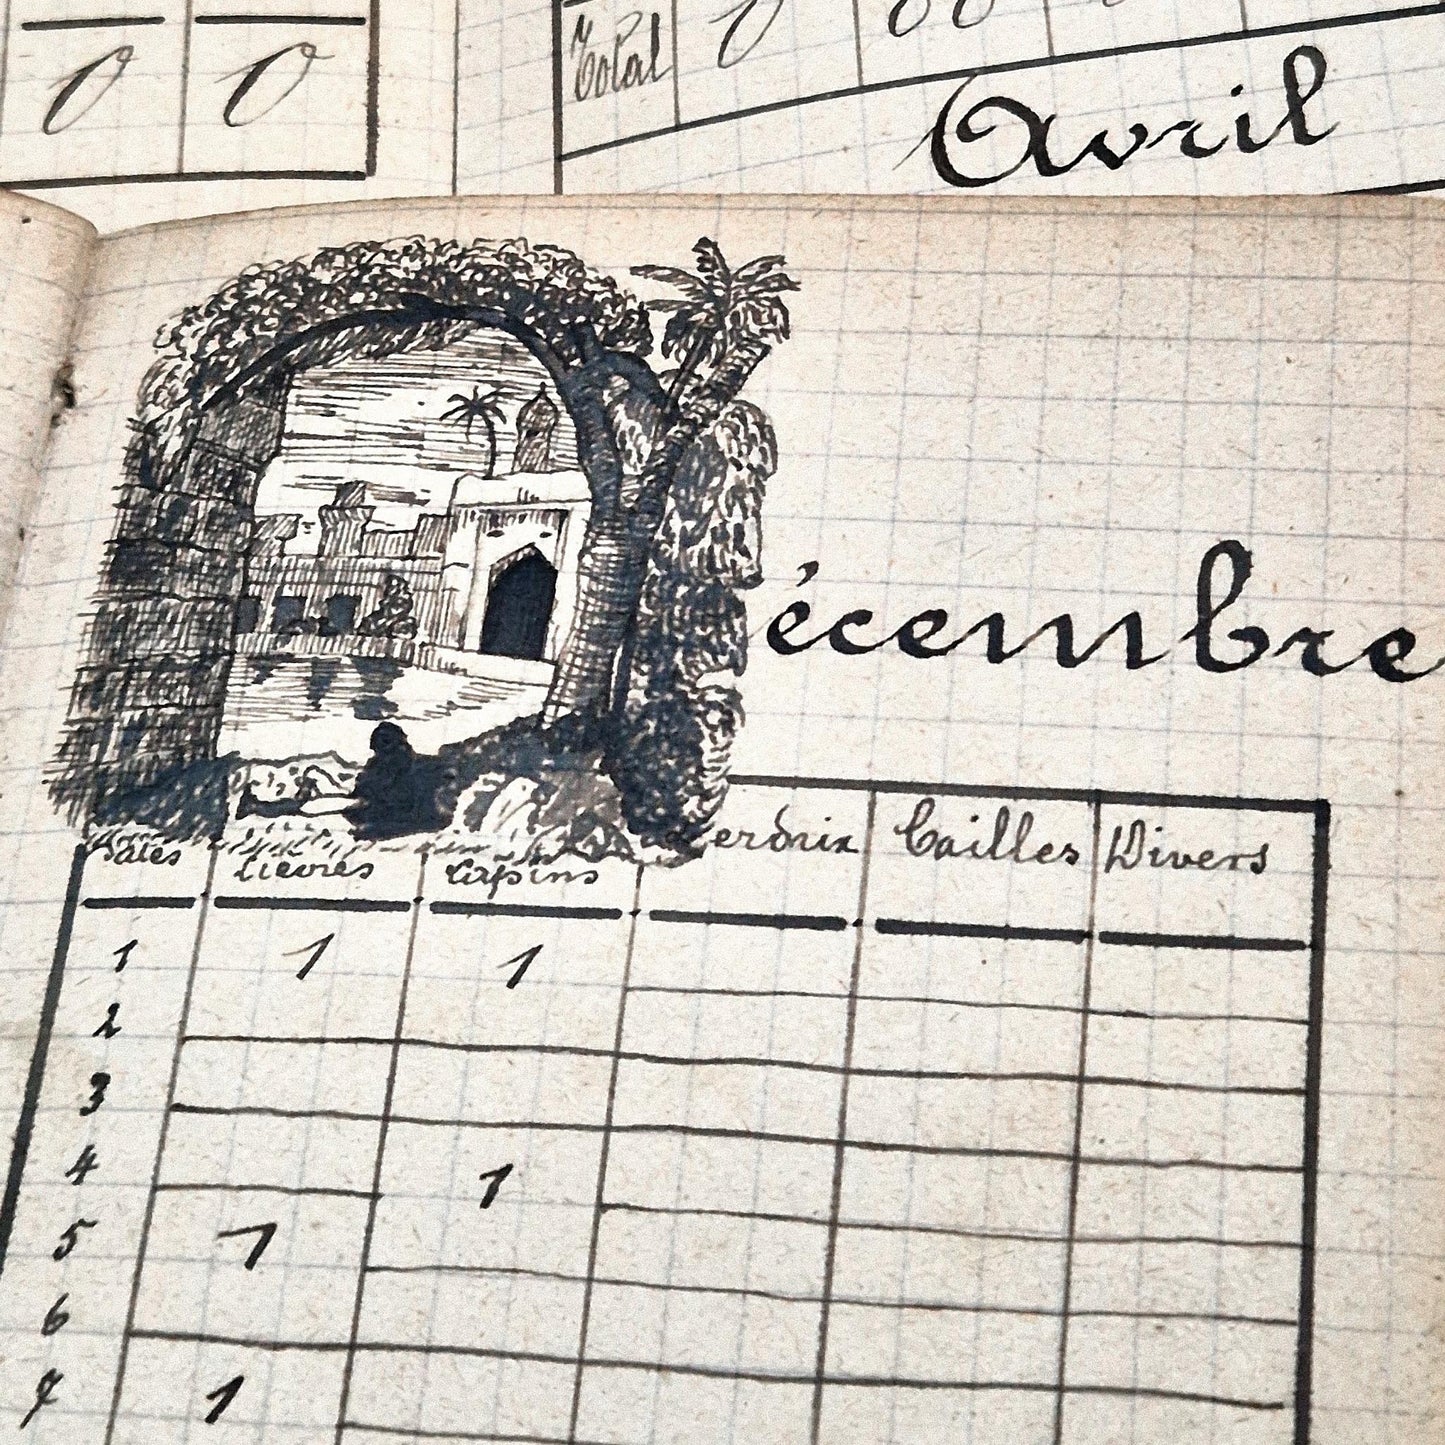 0 0
Total 0 00
Avril
Décembre
Dates Lièvres Lapins Perdrix Cailles Divers
1 1 1
2
3
4 1
5 1
6
7 1